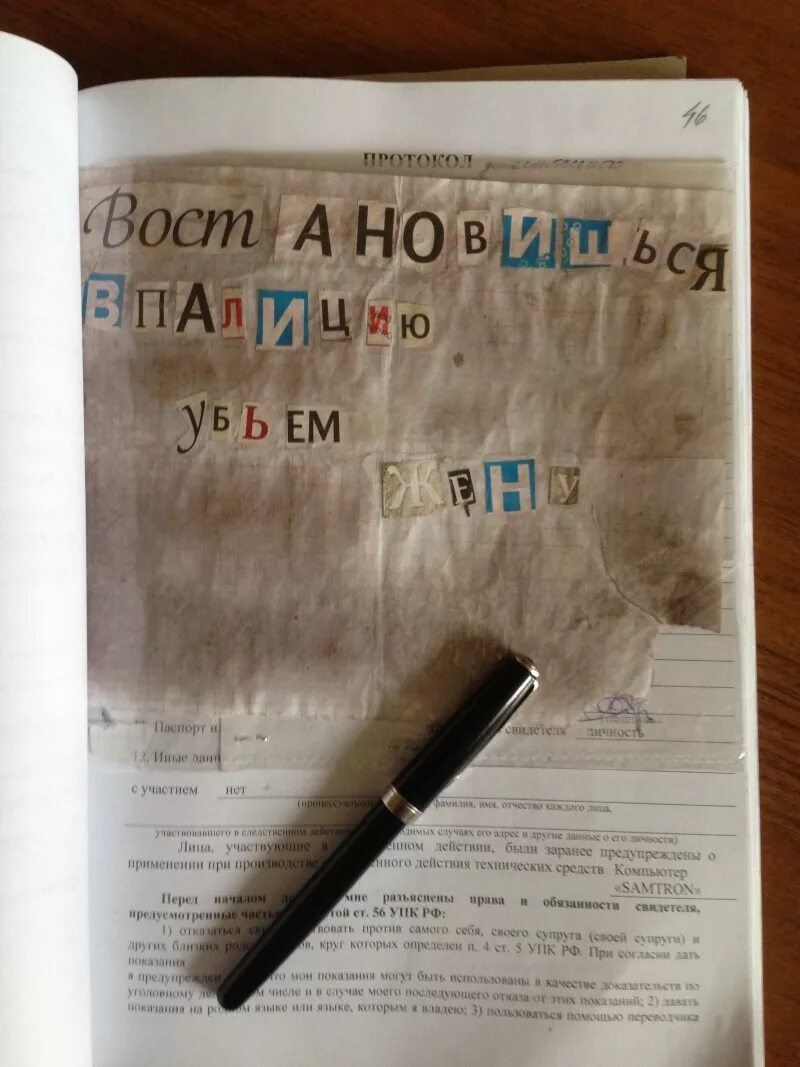 46
ПРОТОКОЛ
ВостАНОВИШЬСЯ
В ПАЛИЦИЮ
УБЬЕМ
ЖЕНУ
Паспорт и
свидетеля личность
12. Иные дан
с участием нет
(процессуально фамилия, имя, отчество каждого лица,
участвовавшего в следственном действии, одимых случаях его адрес и другие данные о его личности)
Лица, участвующие в енном действии, были заранее предупреждены о
применении при производстве енного действия технических средств Компьютер
«SAMTRON»
Перед началом мне разъяснены права и обязанности свидетеля,
предусмотренные часть той ст. 56 УПК РФ:
1) отказаться сви ствовать против самого себя, своего супруга (своей супруги) и
других близких родс ов, круг которых определен п. 4 ст. 5 УПК РФ. При согласии дать
показания
я предупрежден что мои показания могут быть использованы в качестве доказательств по
уголовному де м числе и в случае моего последующего отказа от этих показаний; 2) давать
показания на родном языке или языке, которым я владею; 3) пользоваться помощью переводчика